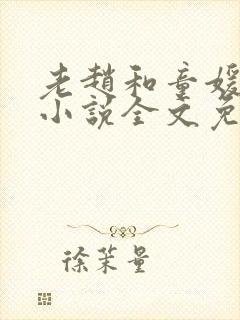 老趙和童媛
小說全文免
徐茉量